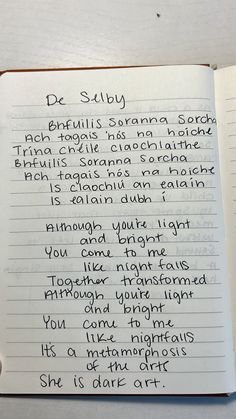 De Selby
Bhfuilis Soranna Sorcha
Ach tagais 'nós na hoiche
Trína chéile claochlaithe
Bhfuilis Soranna Sorcha
Ach tagais 'nós na hoiche
Is claochlú an ealain
Is ealain dubh í
Although you're light
and bright
You come to me
like night falls
Together transformed
Although you're light
and bright
You come to me
like nightfalls
It's a metamorphosis
of the arts
She is dark art.